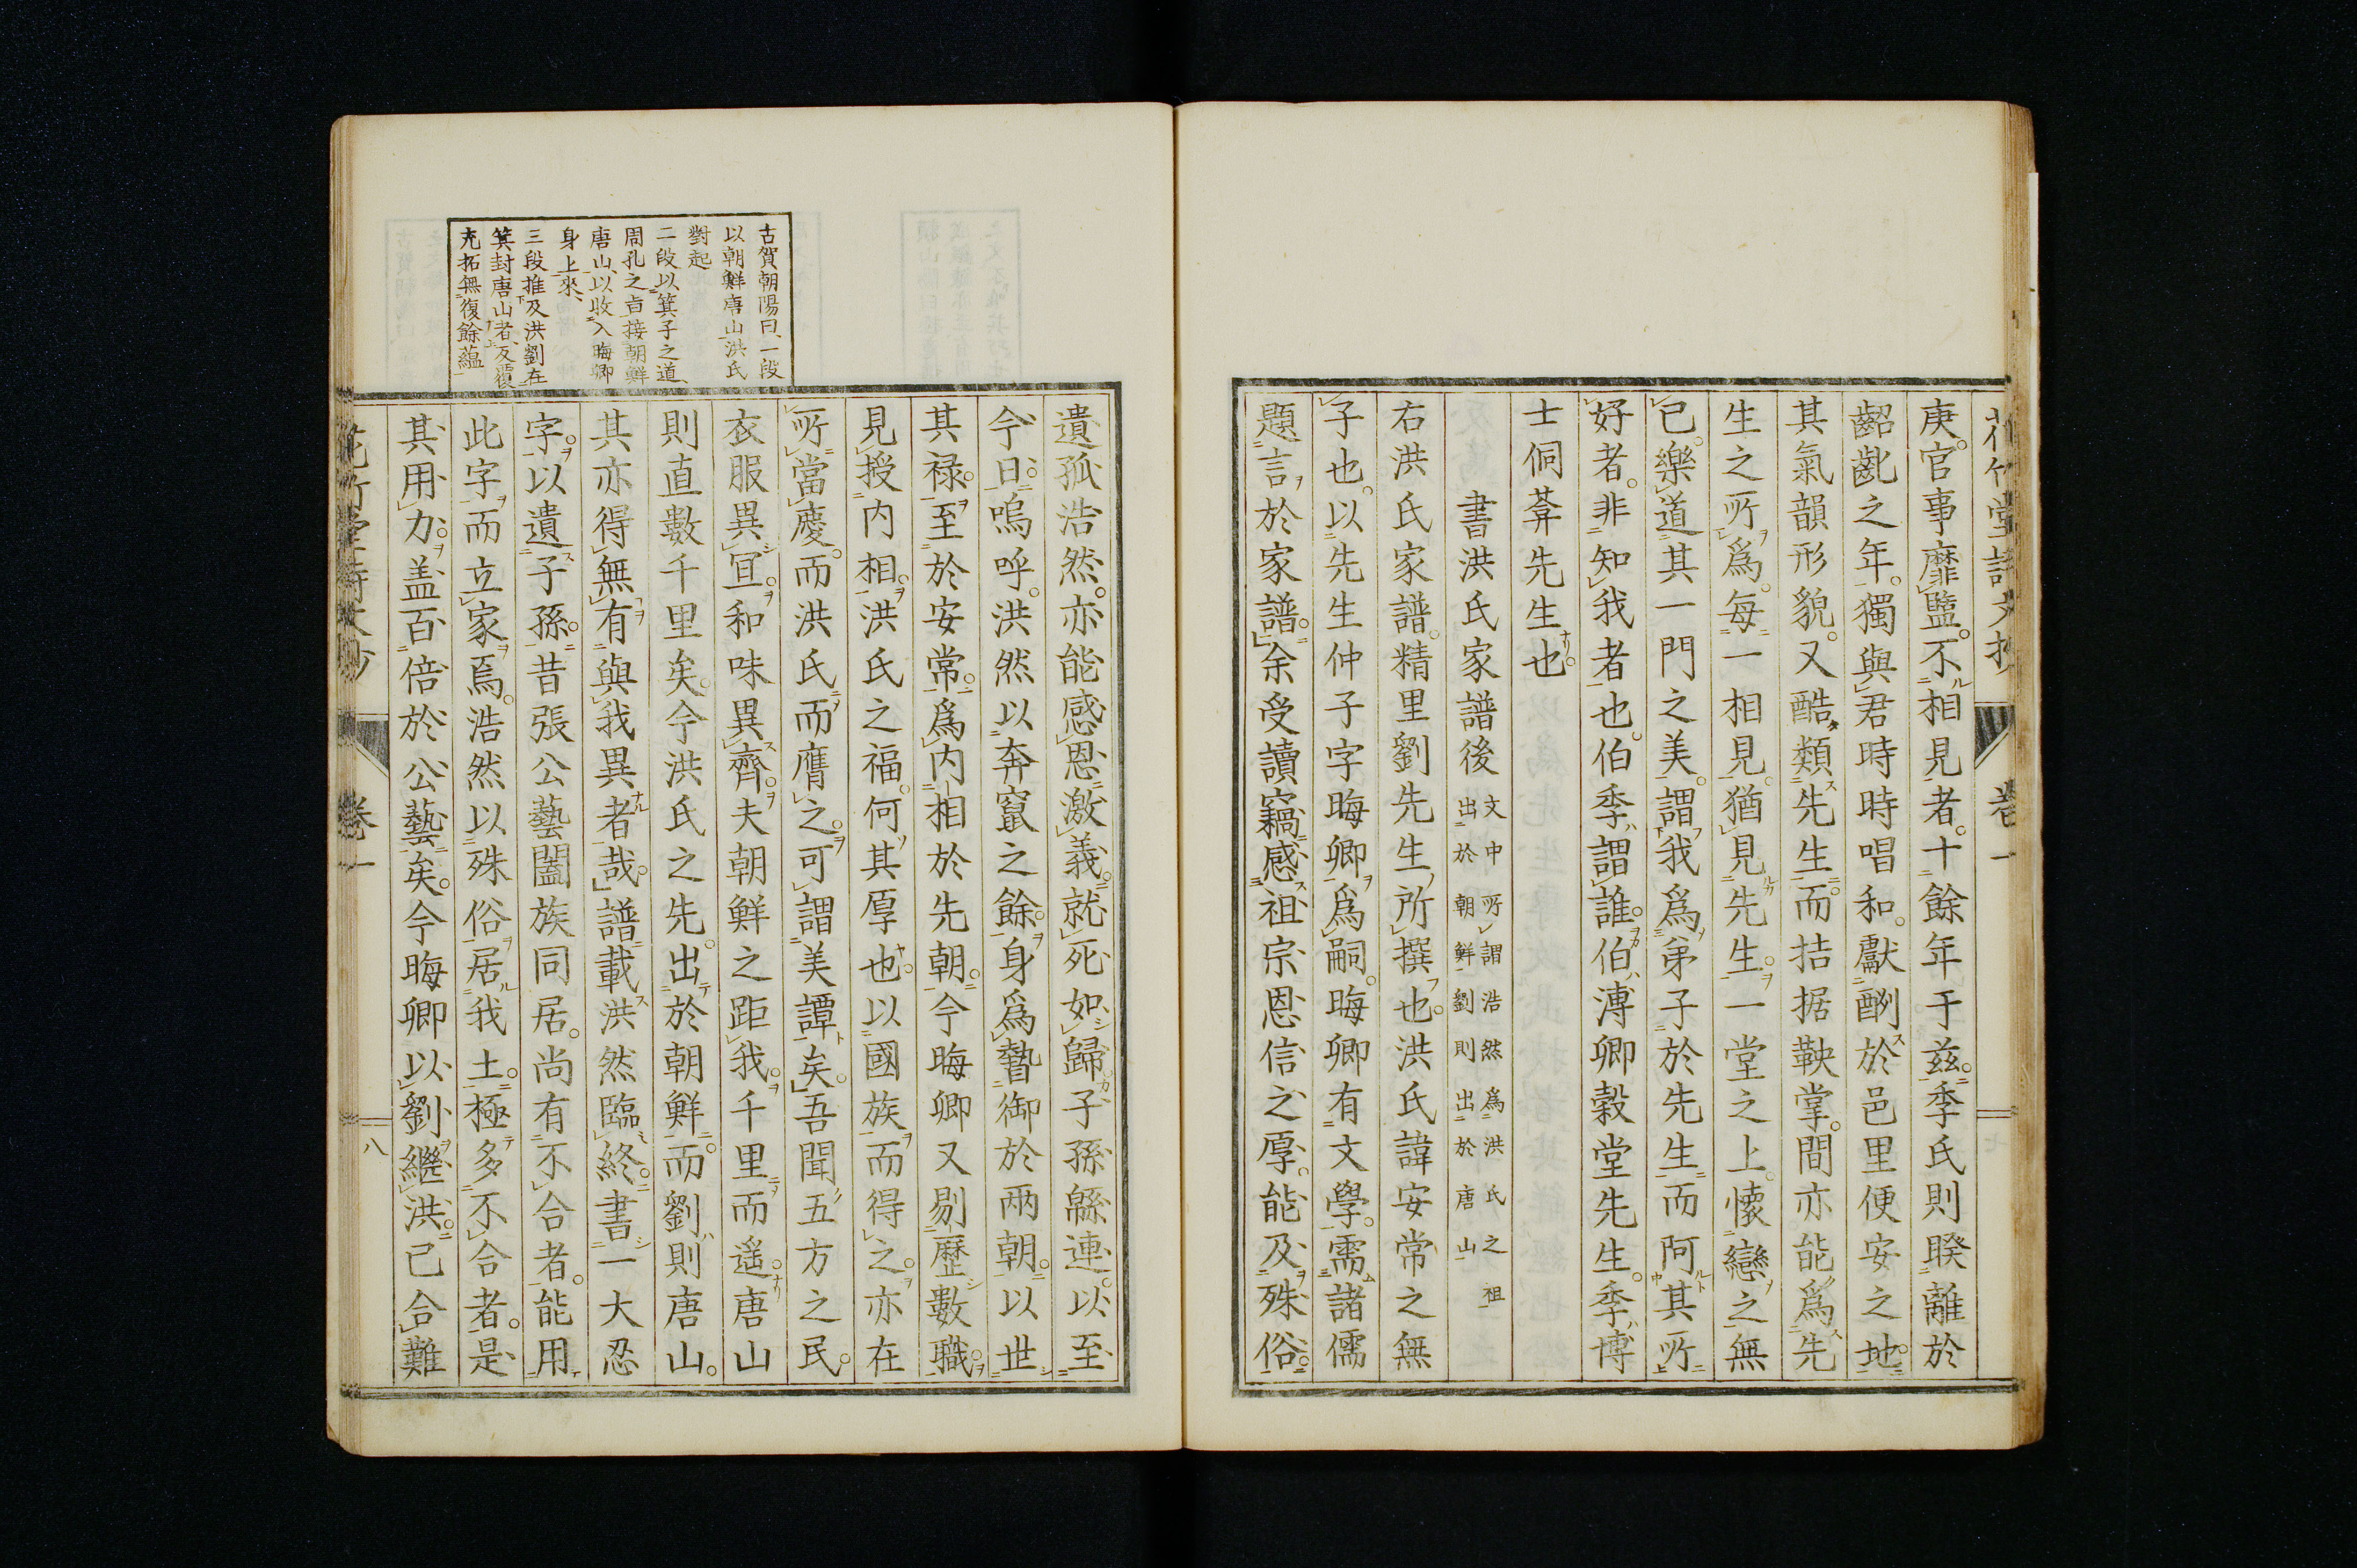 花竹堂詩文抄
卷一
七
庚官事靡盬不相見者十餘年于茲季氏則睽離於
齠齔之年獨與君時時唱和獻酬於邑里便安之地
其氣韻形貌又酷類先生而拮据鞅掌間亦能爲先
生之所爲每一相見猶見先生一堂之上懷戀之無
已樂道其一門之美謂我爲弟子於先生而阿其所
好者非知我者也伯季謂誰伯溥卿穀堂先生季博
士侗葊先生也
書洪氏家譜後
文中所謂浩然爲洪氏之祖
出於朝鮮劉則出於唐山
右洪氏家譜精里劉先生所撰也洪氏諱安常之無
子也以先生仲子字晦卿爲嗣晦卿有文學需諸儒
題言於家譜余受讀竊感祖宗恩信之厚能及殊俗
古賀朝陽曰一段
以朝鮮唐山洪氏
對起
二段以箕子之道
周孔之直接朝鮮
唐山以收入晦卿
身上來
三段推及洪劉在
箕封唐山者反覆
充拓無復餘蘊
遺孤浩然亦能感恩激義就死如歸子孫緜連以至
今日嗚呼洪然以奔竄之餘身爲贄御於兩朝以世
其祿至於安常爲內相於先朝今晦卿又剔歷數職
見授內相洪氏之福何其厚也以國族而得之亦在
所當慶而洪氏而膺之可謂美譚矣吾聞五方之民
衣服異宜和味異齊夫朝鮮之距我千里而遥唐山
則直數千里矣今洪氏之先出於朝鮮而劉則唐山
其亦得無有與我異者哉譜載洪然臨終書一大忍
字以遺子孫昔張公藝闔族同居尚有不合者能用
此字而立家焉浩然以殊俗居我土極多不合者是
其用力盖百倍於公藝矣今晦卿以劉繼洪已合難
花竹堂詩文抄
卷一
八